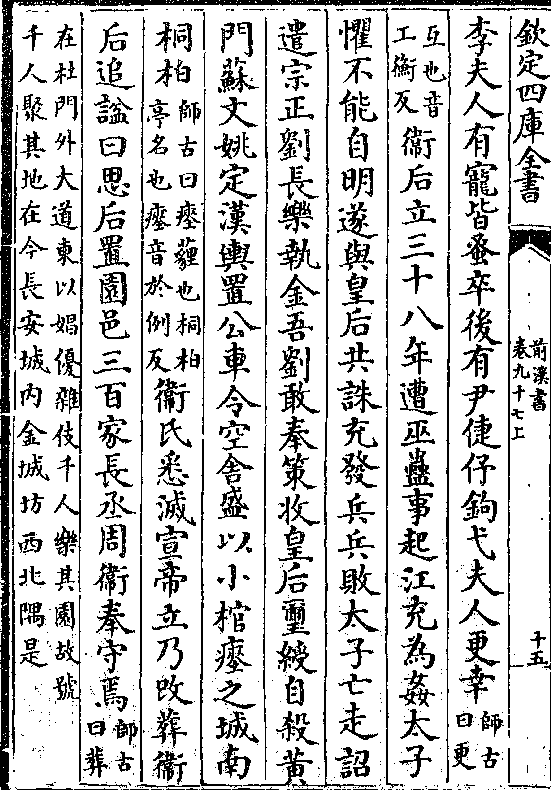 欽定四庫全書
前漢書
卷九十七上
十五
李夫人有寵皆蚤卒後有尹倢伃鉤弋夫人更幸
師古
曰更
互也音
工衡反
衛后立三十八年遭巫蠱事起江充為姦太子
懼不能自明遂與皇后共誅充發兵兵敗太子亡走詔
遣宗正劉長樂執金吾劉敢奉策收皇后璽綬自殺黃
門蘇文姚定漢輿置公車令空舍盛以小棺瘞之城南
桐柏
師古曰瘞薶也桐柏
亭名也瘞音於例反
衛氏悉滅宣帝立乃改葬衛
后追諡曰思后置園邑三百家長丞周衛奉守焉
師古
曰葬
在杜門外大道東以娼優雜伎千人樂其園故號
千人聚其地在今長安城內金城坊西北隅是